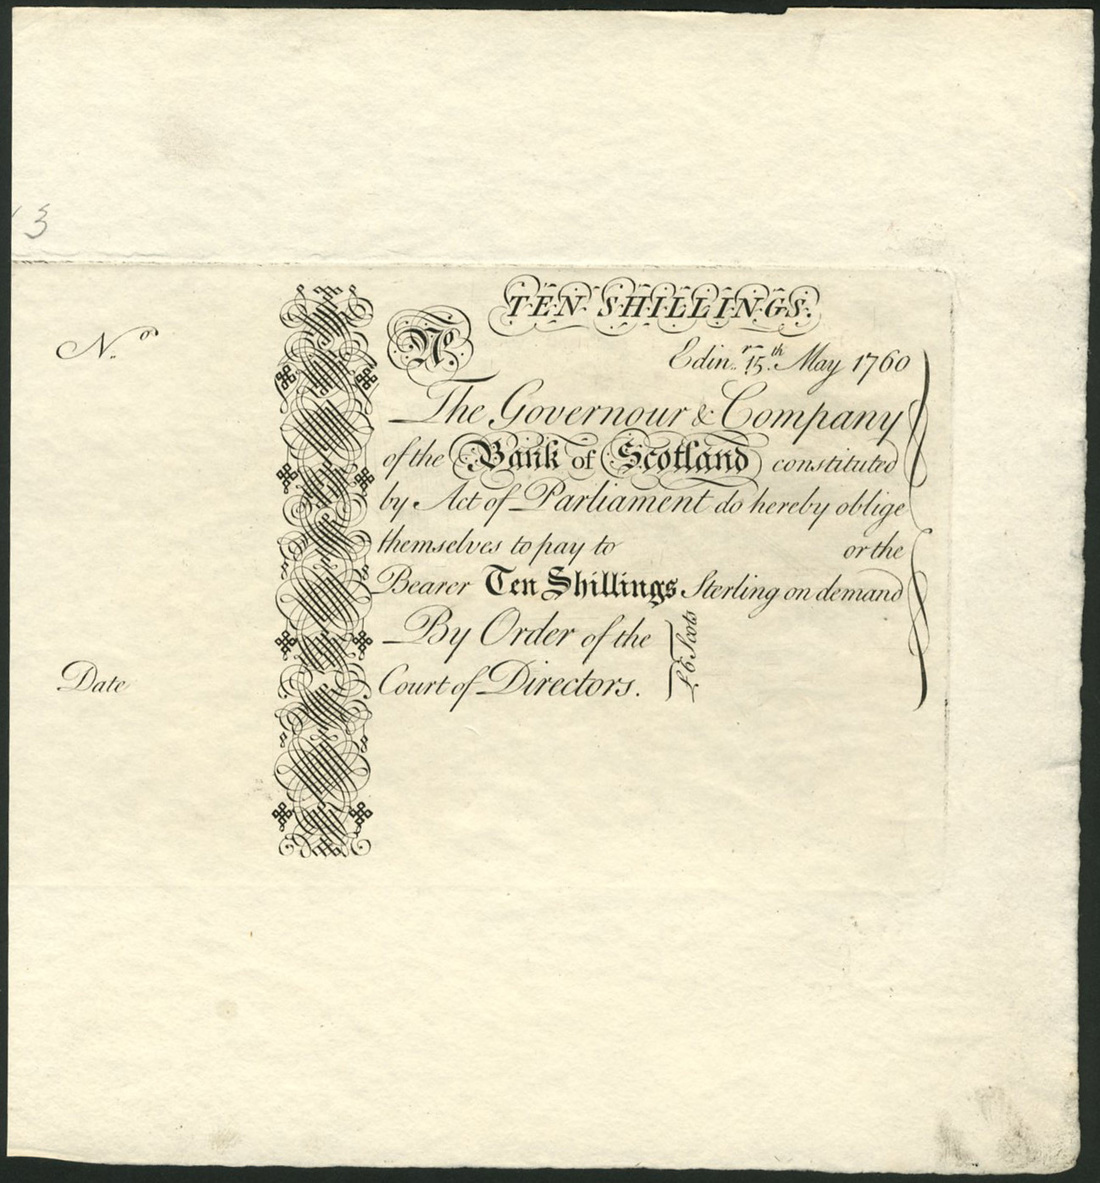 3
TEN SHILLINGS.
No
No
Edinr. 15th. May 1760
The Governour & Company
of the Bank of Scotland constituted
by Act of Parliament do hereby oblige
themselves to pay to or the
Bearer Ten Shillings Sterling on demand
By Order of the
Court of Directors.
£6 Scots
Date